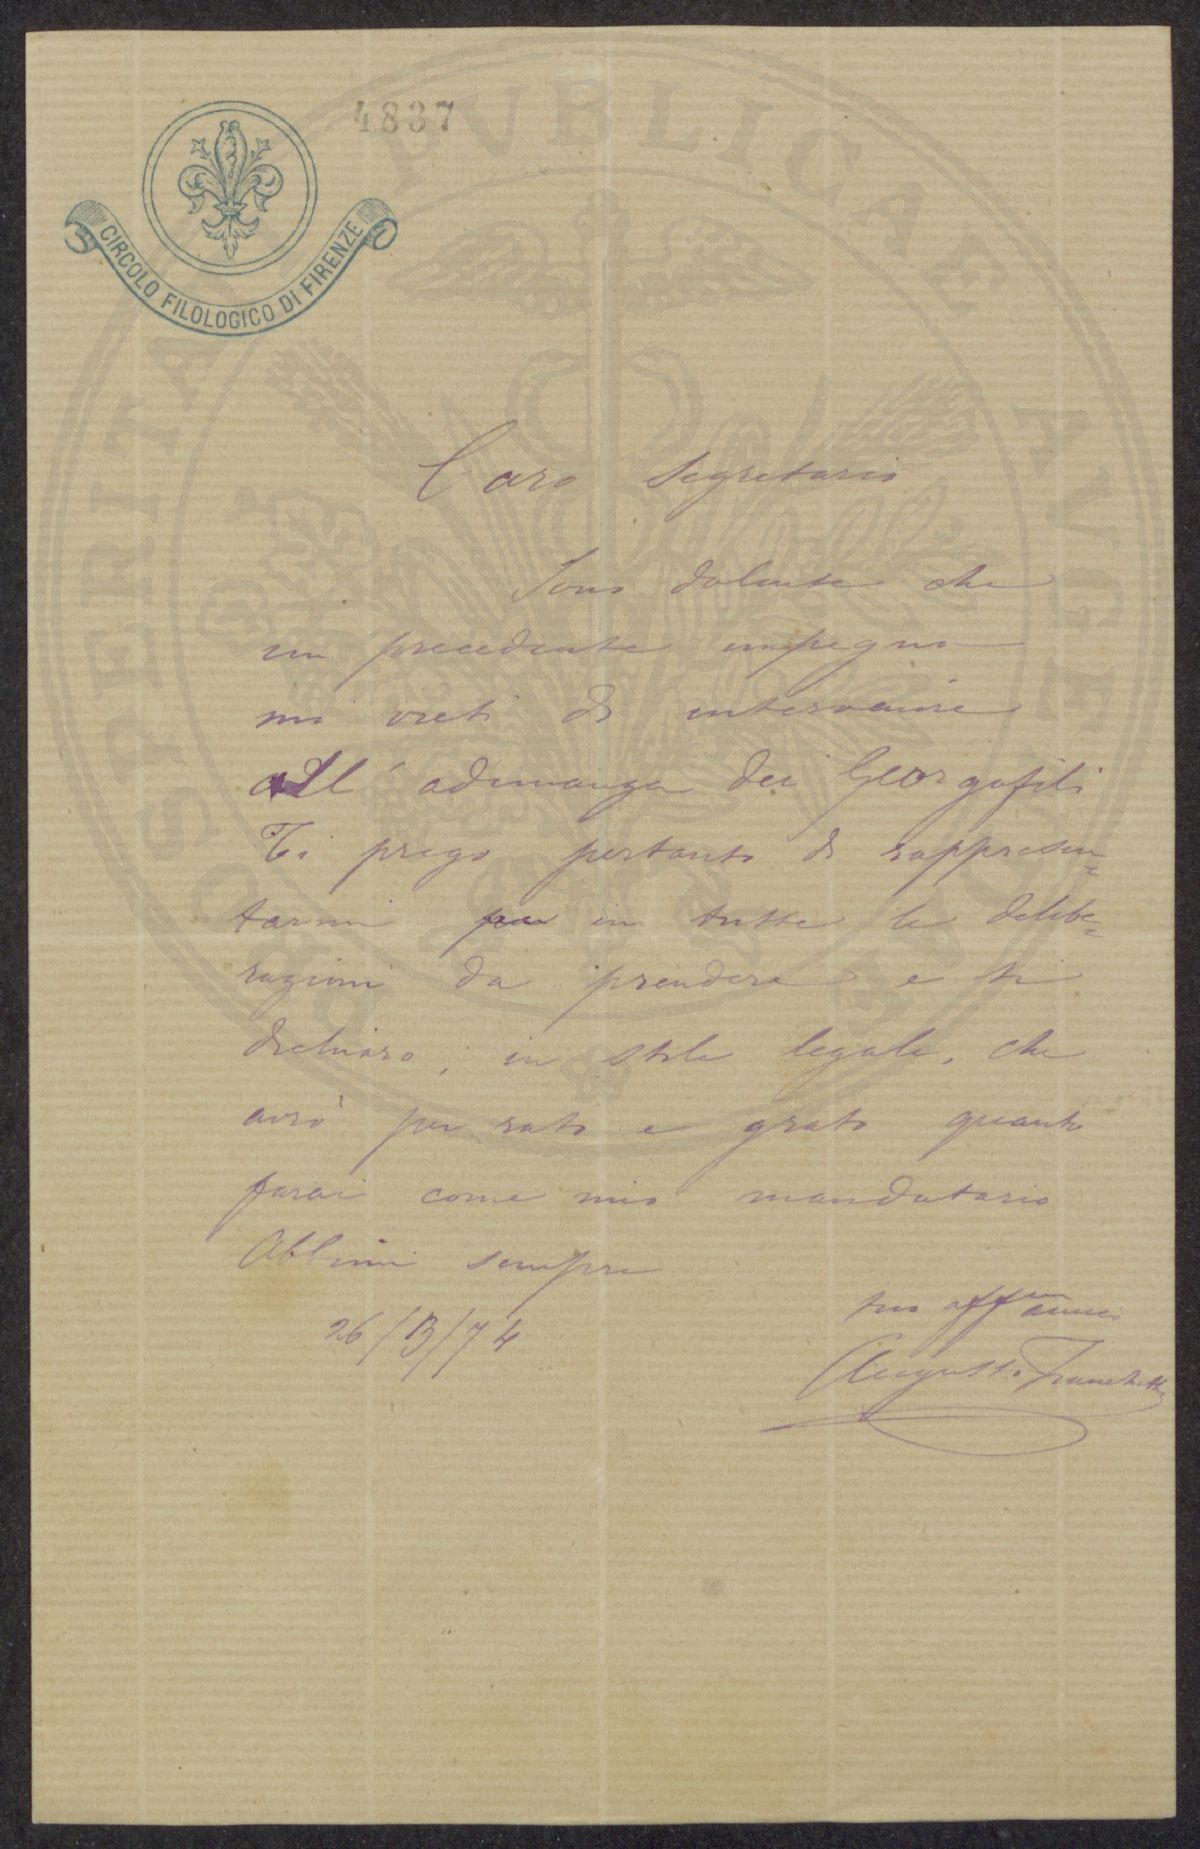 4837
CIRCOLO FILOLOGICO DI FIRENZE
PROSPERITATI PVBLICAE AVGENDAE
Caro Segretario
Sono dolente che
un precedente impegno
mi vieti di intervenire
all' adunanza dei Georgofili
Ti prego pertanto di rappresen=
tarmi in tutte le delibe=
razioni da prendere e ti
dichiaro, in stile legale, che
avrò per rato e grato quanto
farai come mio mandatario
Abbimi sempre
tuo affmo amico
26/3/74
Augusto Franchetti